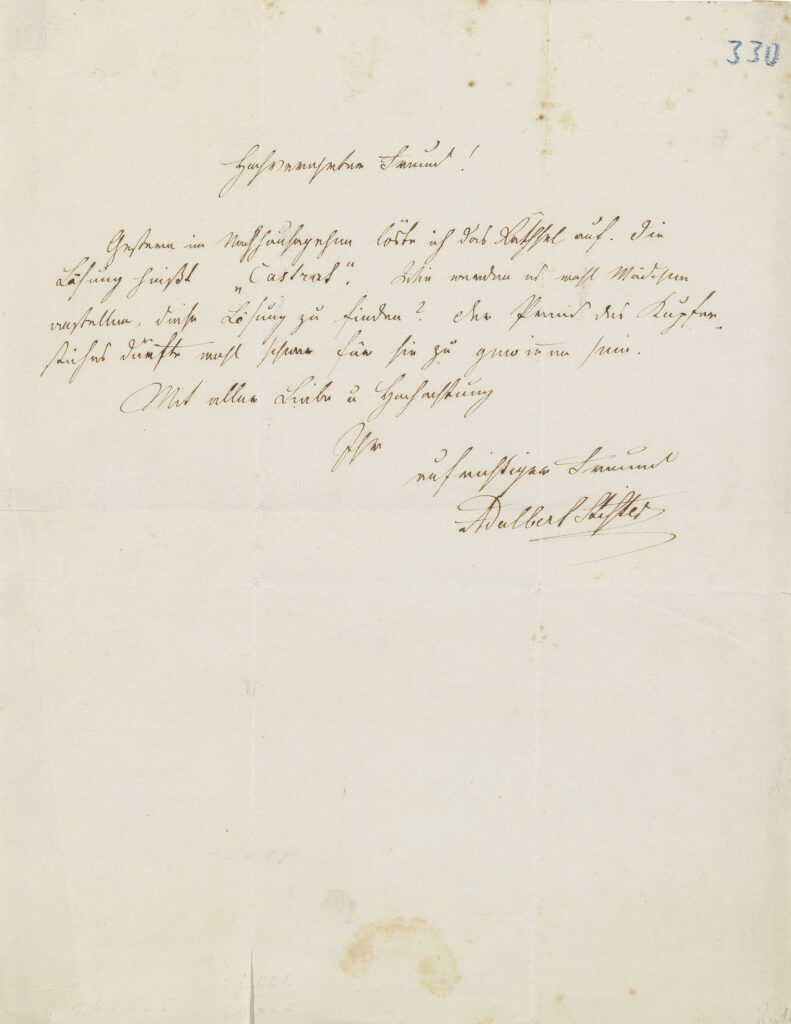 330
Hochverehrter Freund!
Gestern im Nachhausegehen löste ich das Räthsel auf. Die
Lösung heißt „Castrat“. Wie werden es wohl Mädchen
anstellen, diese Lösung zu finden? Der Preis des Kupfer-
stiches dürfte wohl schwer für sie zu gewinnen sein.
Mit aller Liebe u Hochachtung
Ihr
aufrichtiger Freund
Adalbert Stifter